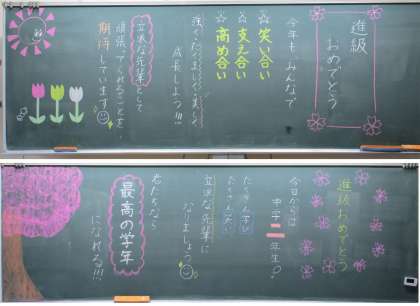 進級
おめでとう
今年も、みんなで
☆笑い合い
☆支え合い
☆高め合い
強く、たくましく、美しく
成長しよう!!!
立派な先輩として
頑張ってくれることを
期待しています
進級おめでとう
今日からは
中学二年生
たくさん学び
立派な先輩に
なりましょう
君たちなら
最高の学年
になれる!!!